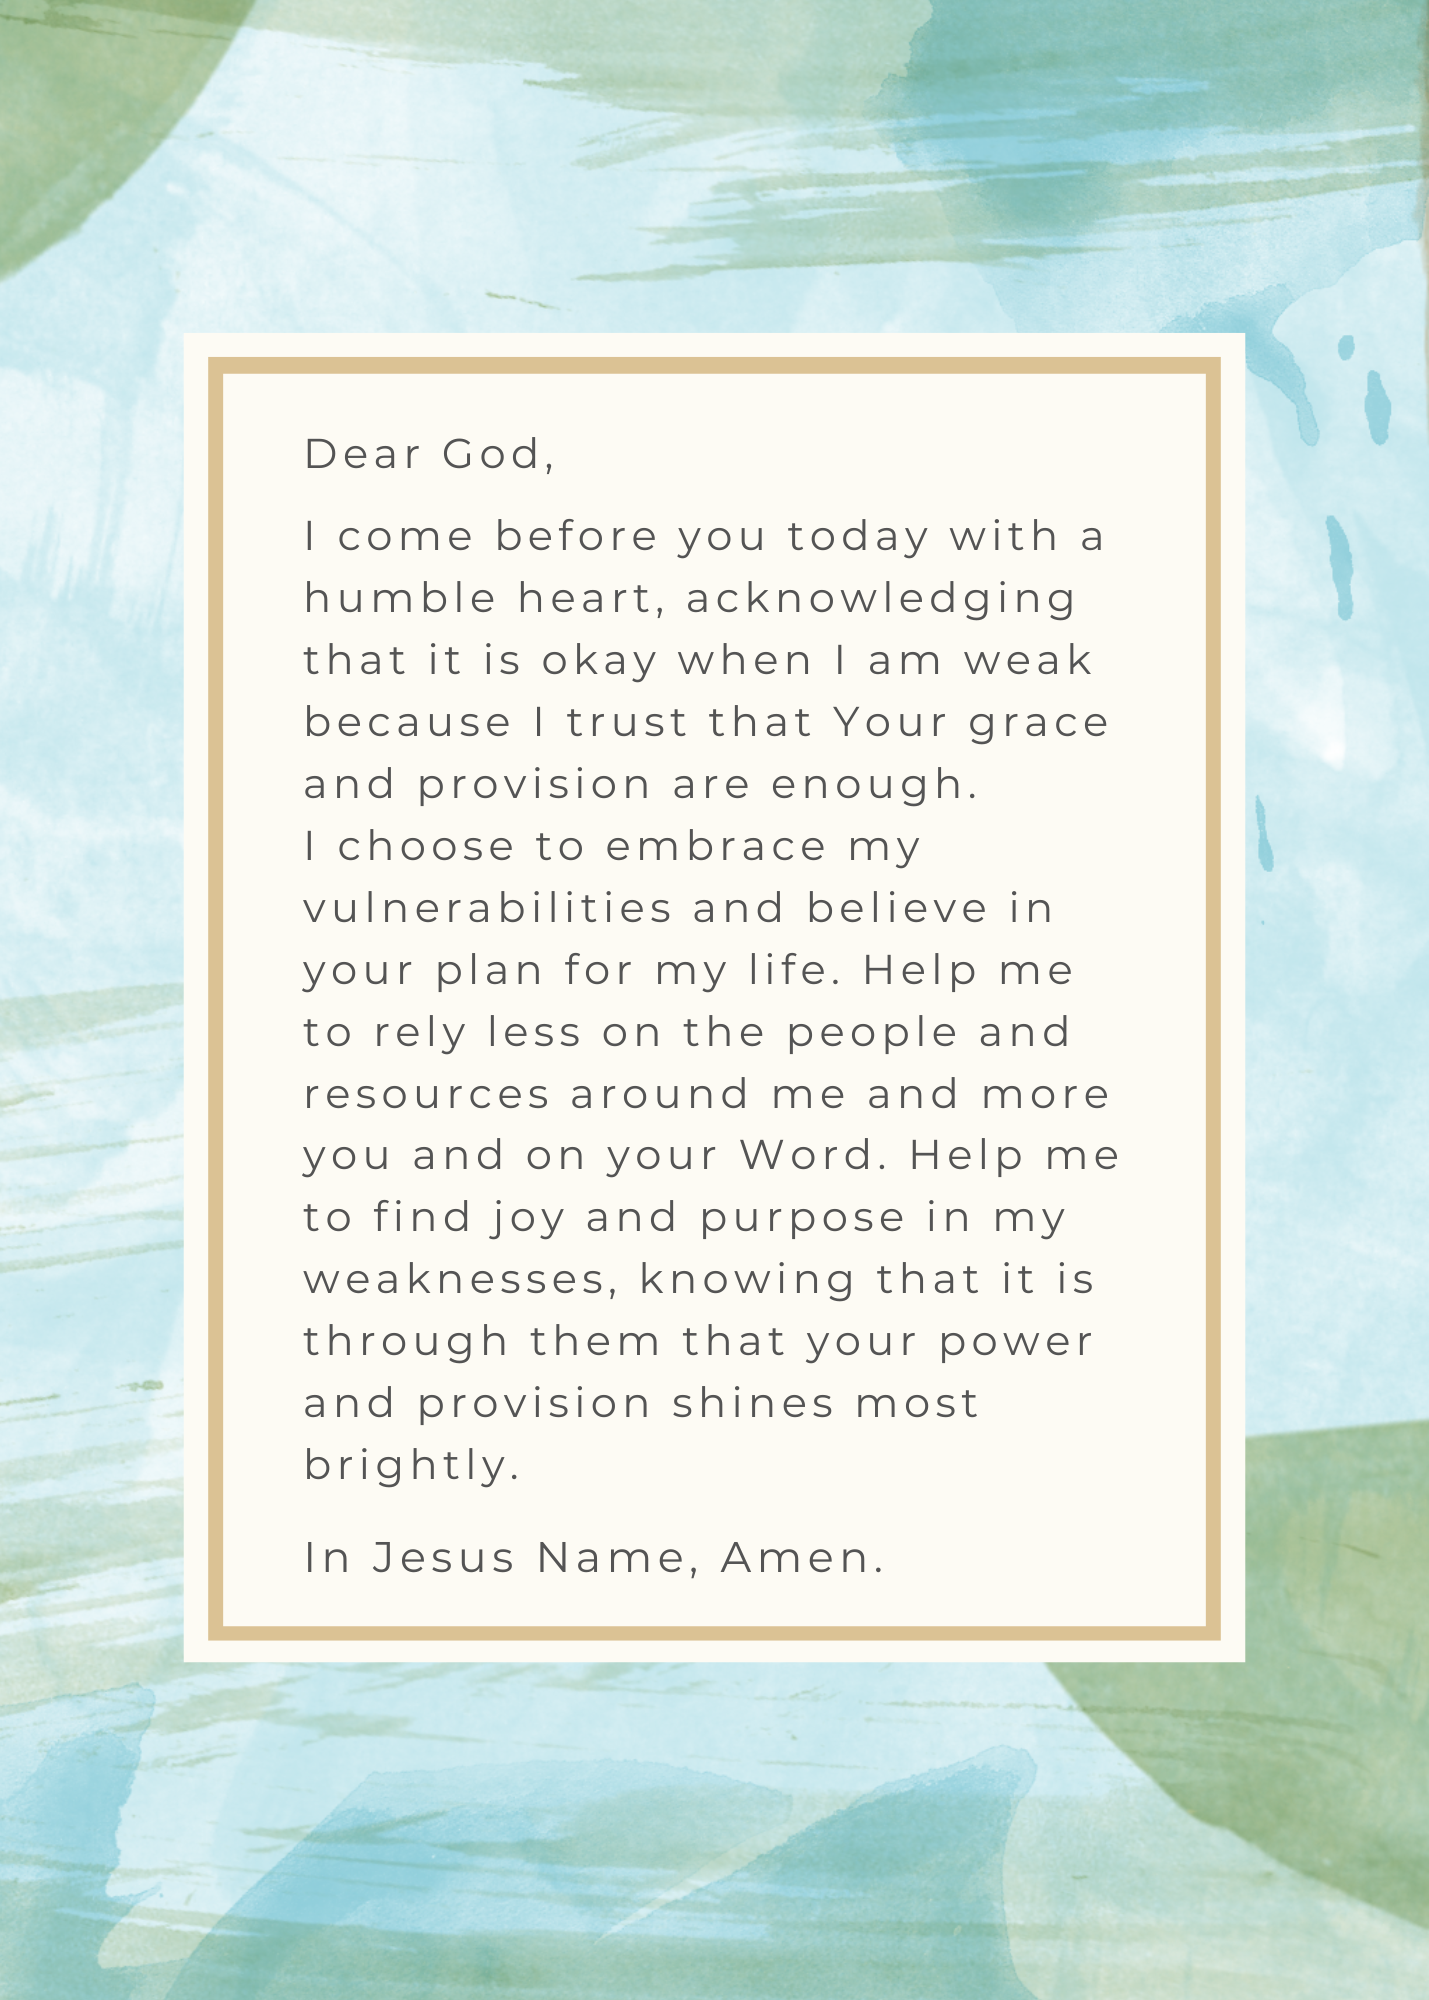 Dear God,
I come before you today with a
humble heart, acknowledging
that it is okay when I am weak
because I trust that Your grace
and provision are enough.
I choose to embrace my
vulnerabilities and believe in
your plan for my life. Help me
to rely less on the people and
resources around me and more
you and on your Word. Help me
to find joy and purpose in my
weaknesses, knowing that it is
through them that your power
and provision shines most
brightly.
In Jesus Name, Amen.